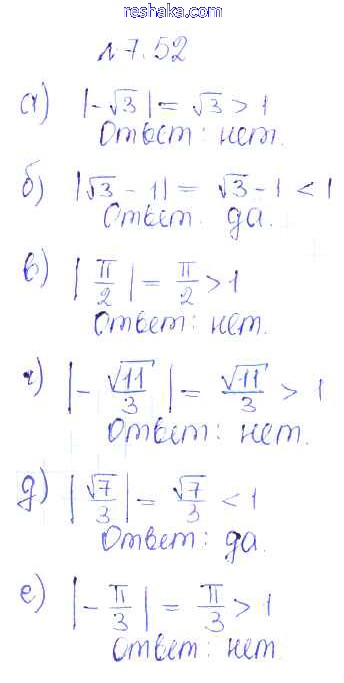 reshaka.com
№7.52
а) |-√3| = √3 > 1
Ответ: нет.
б) |√3 - 1| = √3 - 1 < 1
Ответ. да.
в) |π/2| = π/2 > 1
Ответ: нет.
г) |-√11/3| = √11/3 > 1
Ответ: нет.
д) |√7/3| = √7/3 < 1
Ответ: да.
е) |-π/3| = π/3 > 1
Ответ: нет.